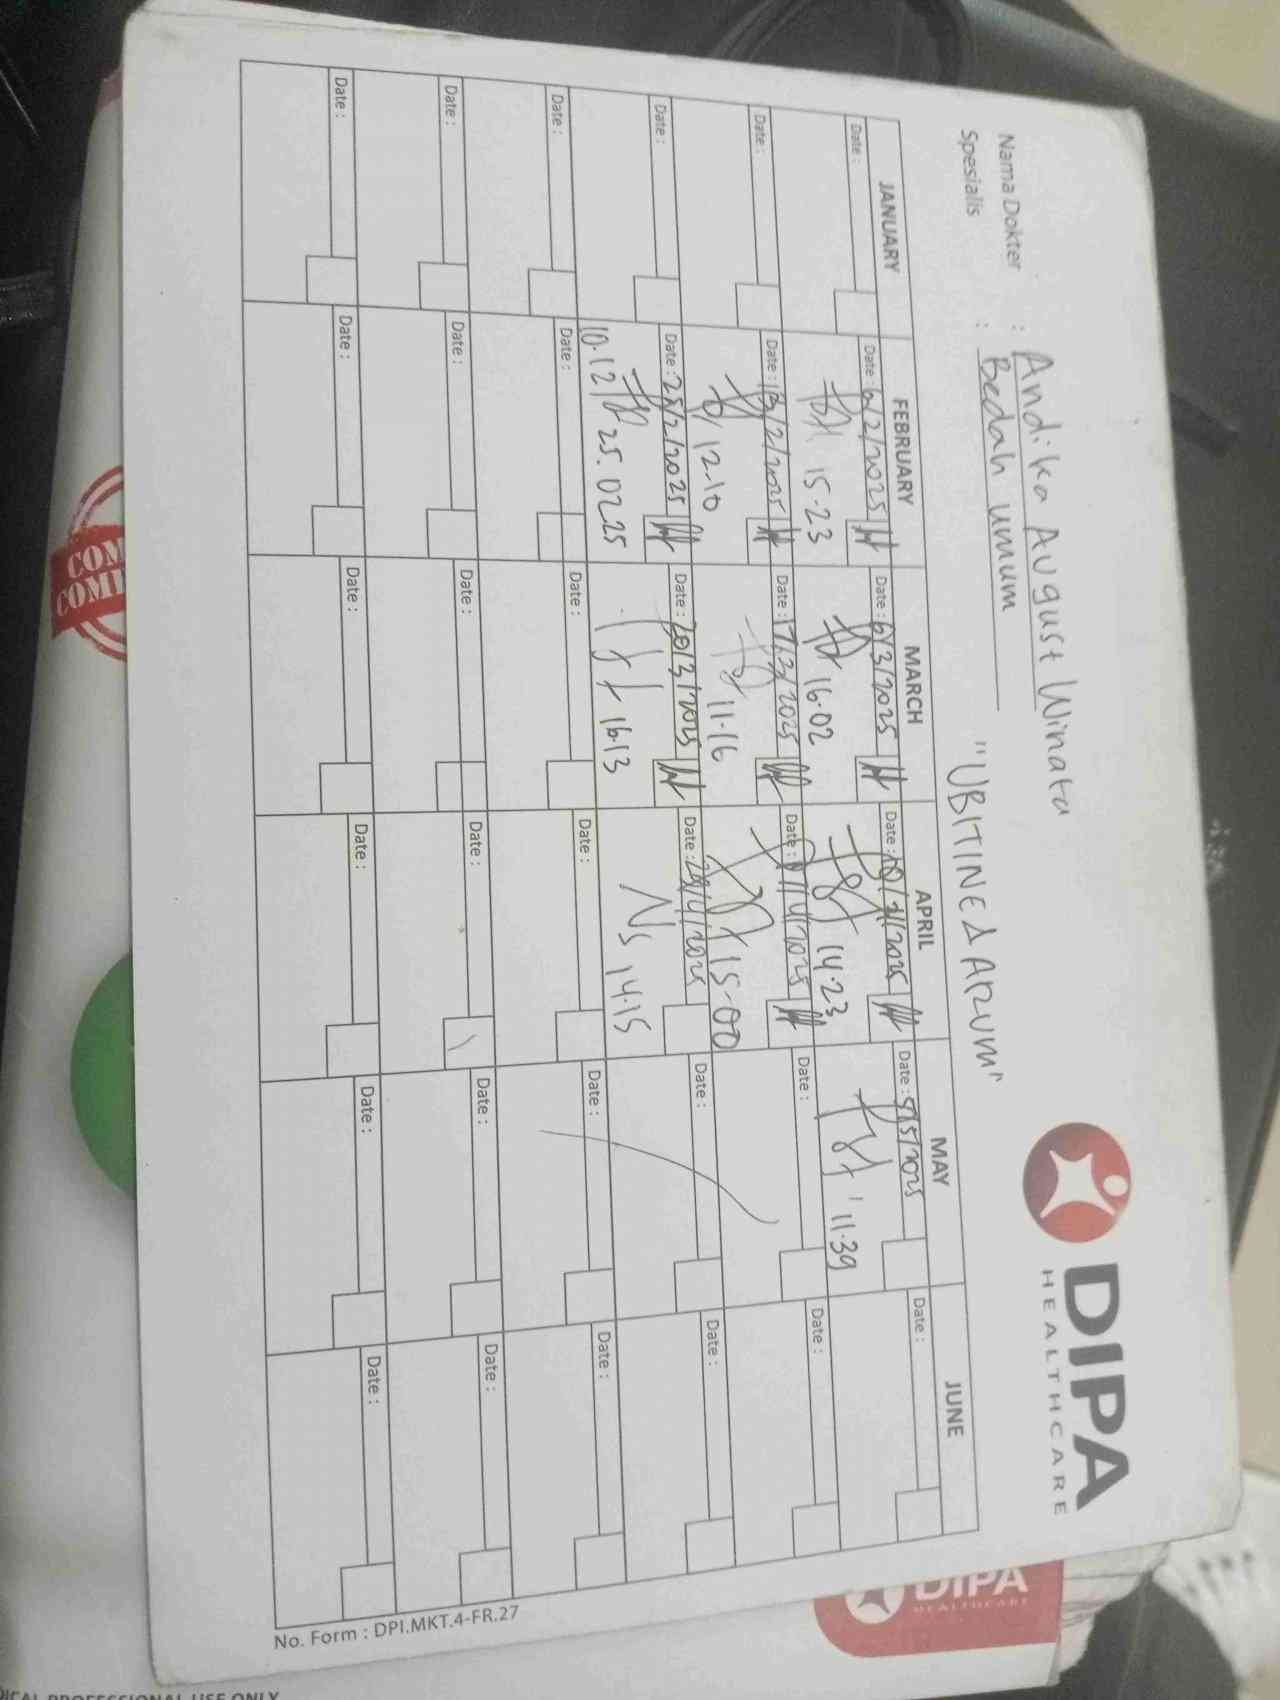 DIPA
HEALTHCARE
Nama Dokter : Andika August Winata
Spesialis : Bedah umum
"UBITINE & ARUM"
JANUARY FEBRUARY MARCH APRIL MAY JUNE
Date : Date : 6/2/2025 Date : 6/3/2025 Date : Date : 5/5/2025 Date :
15.23 16.02 14.23 11.39
Date : Date : 13/2/2025 Date : 17/3/2025 Date : Date : Date :
12.10 11.16 15.00
Date : Date : 25/2/2025 Date : 20/3/2025 Date : 29/4/2025 Date : Date :
10.12 25.02.25 16.13 Ns 14.15
Date : Date : Date : Date : Date : Date :
Date : Date : Date : Date : Date : Date :
Date : Date : Date : Date : Date : Date :
No. Form : DPI.MKT.4-FR.27
DIPA
HEALTHCARE
COM
COMI
PROFESSIONAL USE ONLY